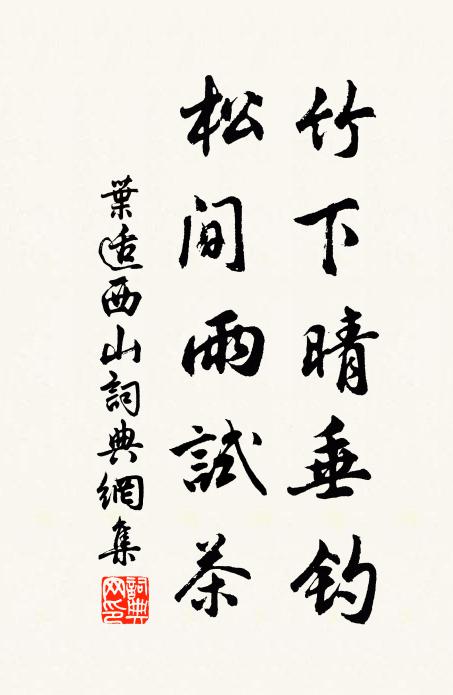 竹下晴垂钓
松间雨試茶
葉适西山詞典網集
詞典网印